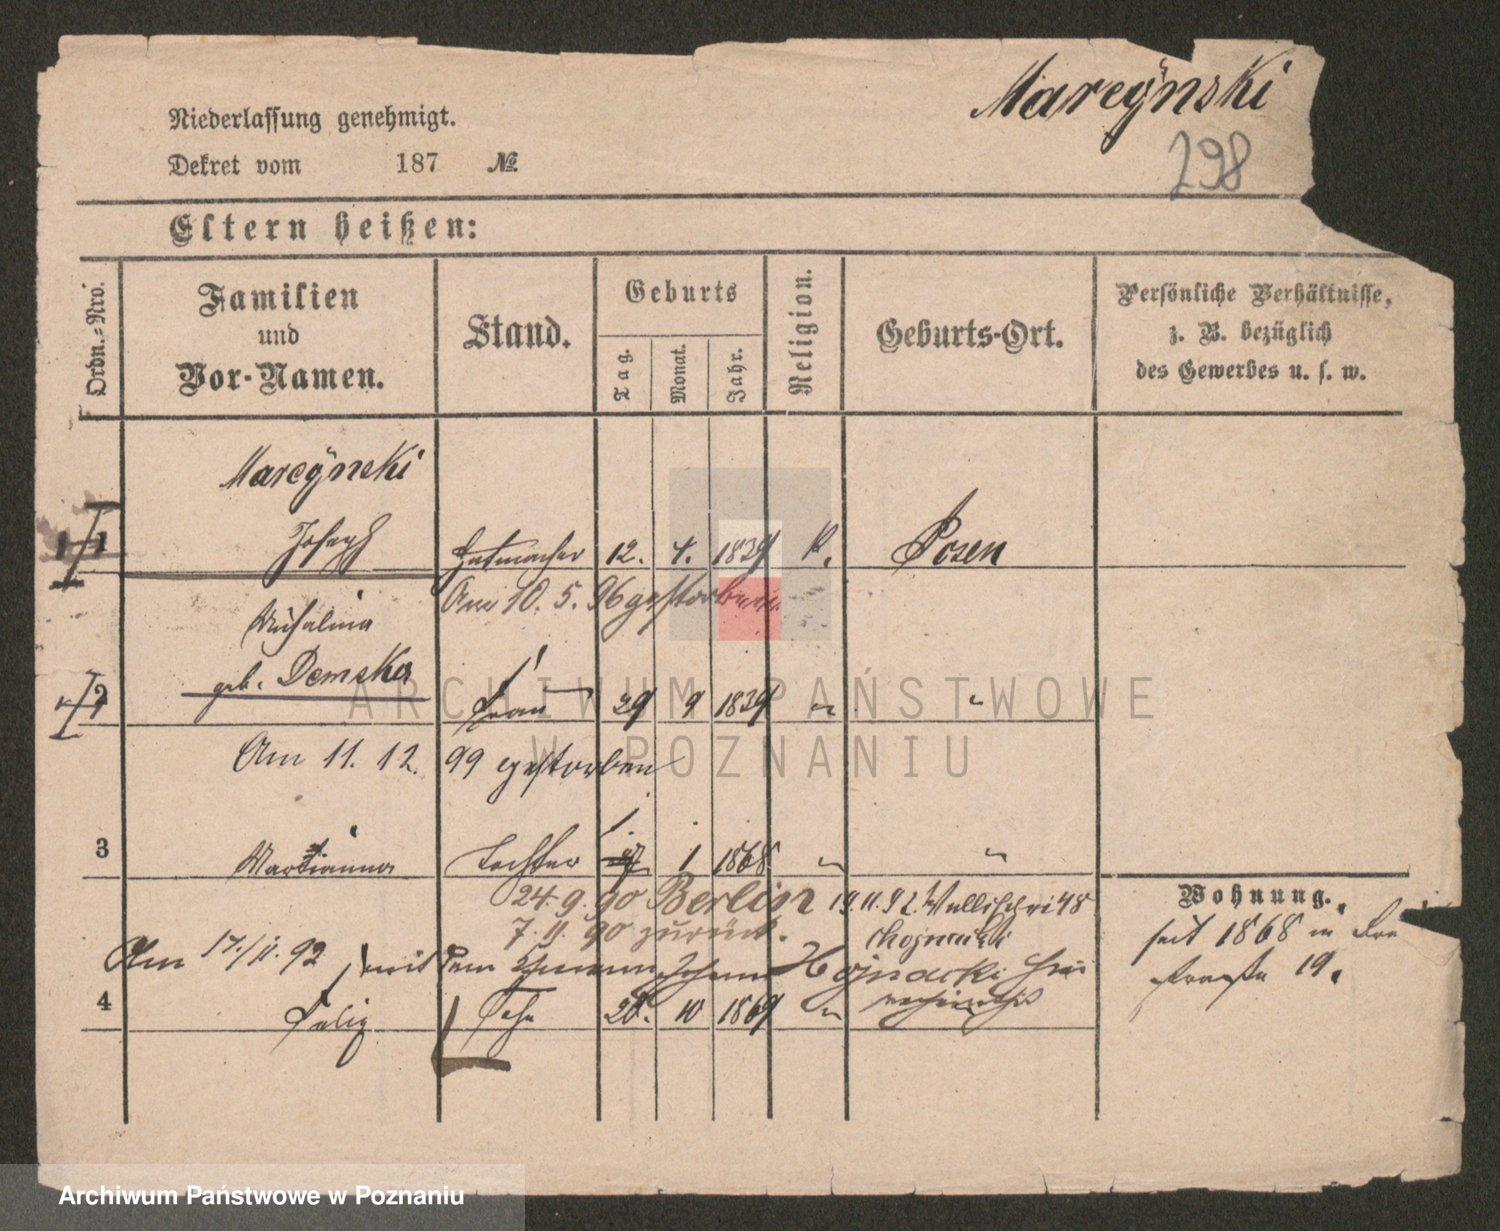 Marcÿnski
298
Niederlassung genehmigt.
Dekret vom 187 №
Eltern heißen:
Ordn.=Nro.
Familien
und
Vor-Namen.
Stand.
Geburts
Tag.
Monat.
Jahr.
Religion.
Geburts-Ort.
Persönliche Verhältnisse,
z. B. bezüglich
des Gewerbes u. s. w.
Marcÿnski
1 Joseph Hutmacher 12. 4. 1839 K. Posen
Am 10. 5. 96 gestorben.
Michalina
geb. Demska
2 Frau 29 9 1839 " "
Am 11. 12. 99 gestorben
3 Marianna Tochter 1 1868 " "
24. 9. 90 Berlin 19. 11. 92. 48
7. 11. 90 zurück.
Am 17./11. 92 mit dem Johann Hojnacki
4 Felix Sohn 28. 10 1869 "
Wohnung.
seit 1868 in
straße 19.
ARCHIWUM PAŃSTWOWE
W POZNANIU
Archiwum Państwowe w Poznaniu